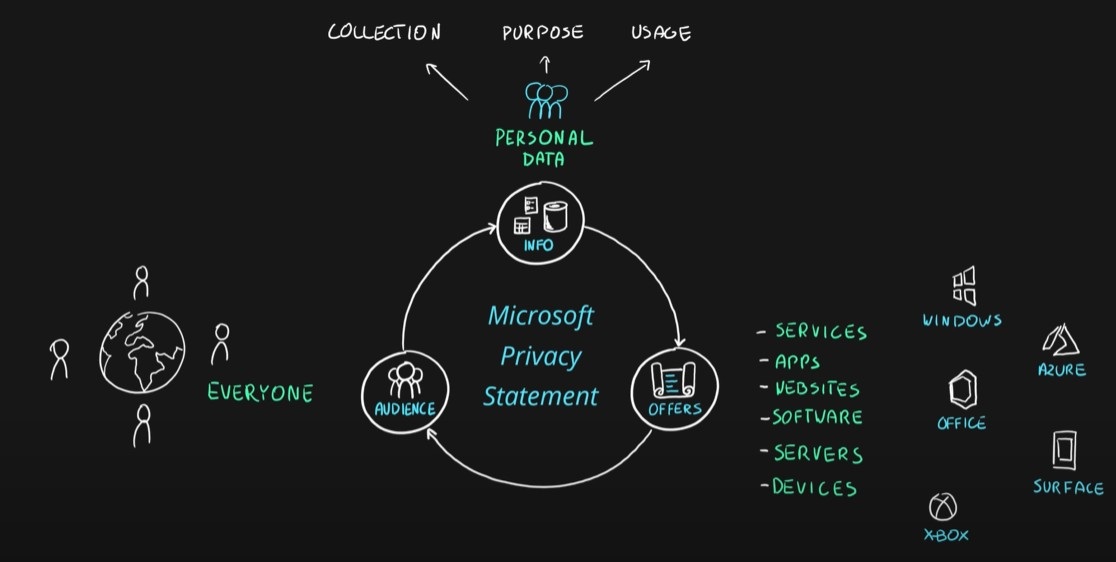 COLLECTION
PURPOSE
USAGE
PERSONAL
DATA
INFO
Microsoft
Privacy
Statement
AUDIENCE
OFFERS
EVERYONE
- SERVICES
- APPS
- WEBSITES
- SOFTWARE
- SERVERS
- DEVICES
WINDOWS
AZURE
OFFICE
SURFACE
X-BOX